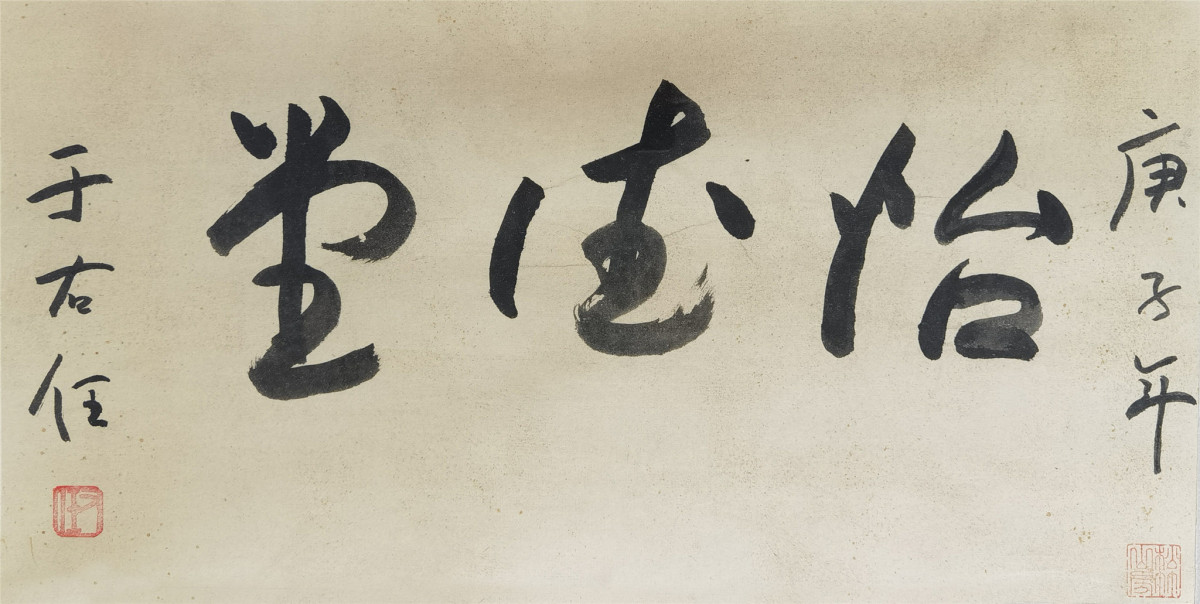 庚子年
怡德堂
于右任